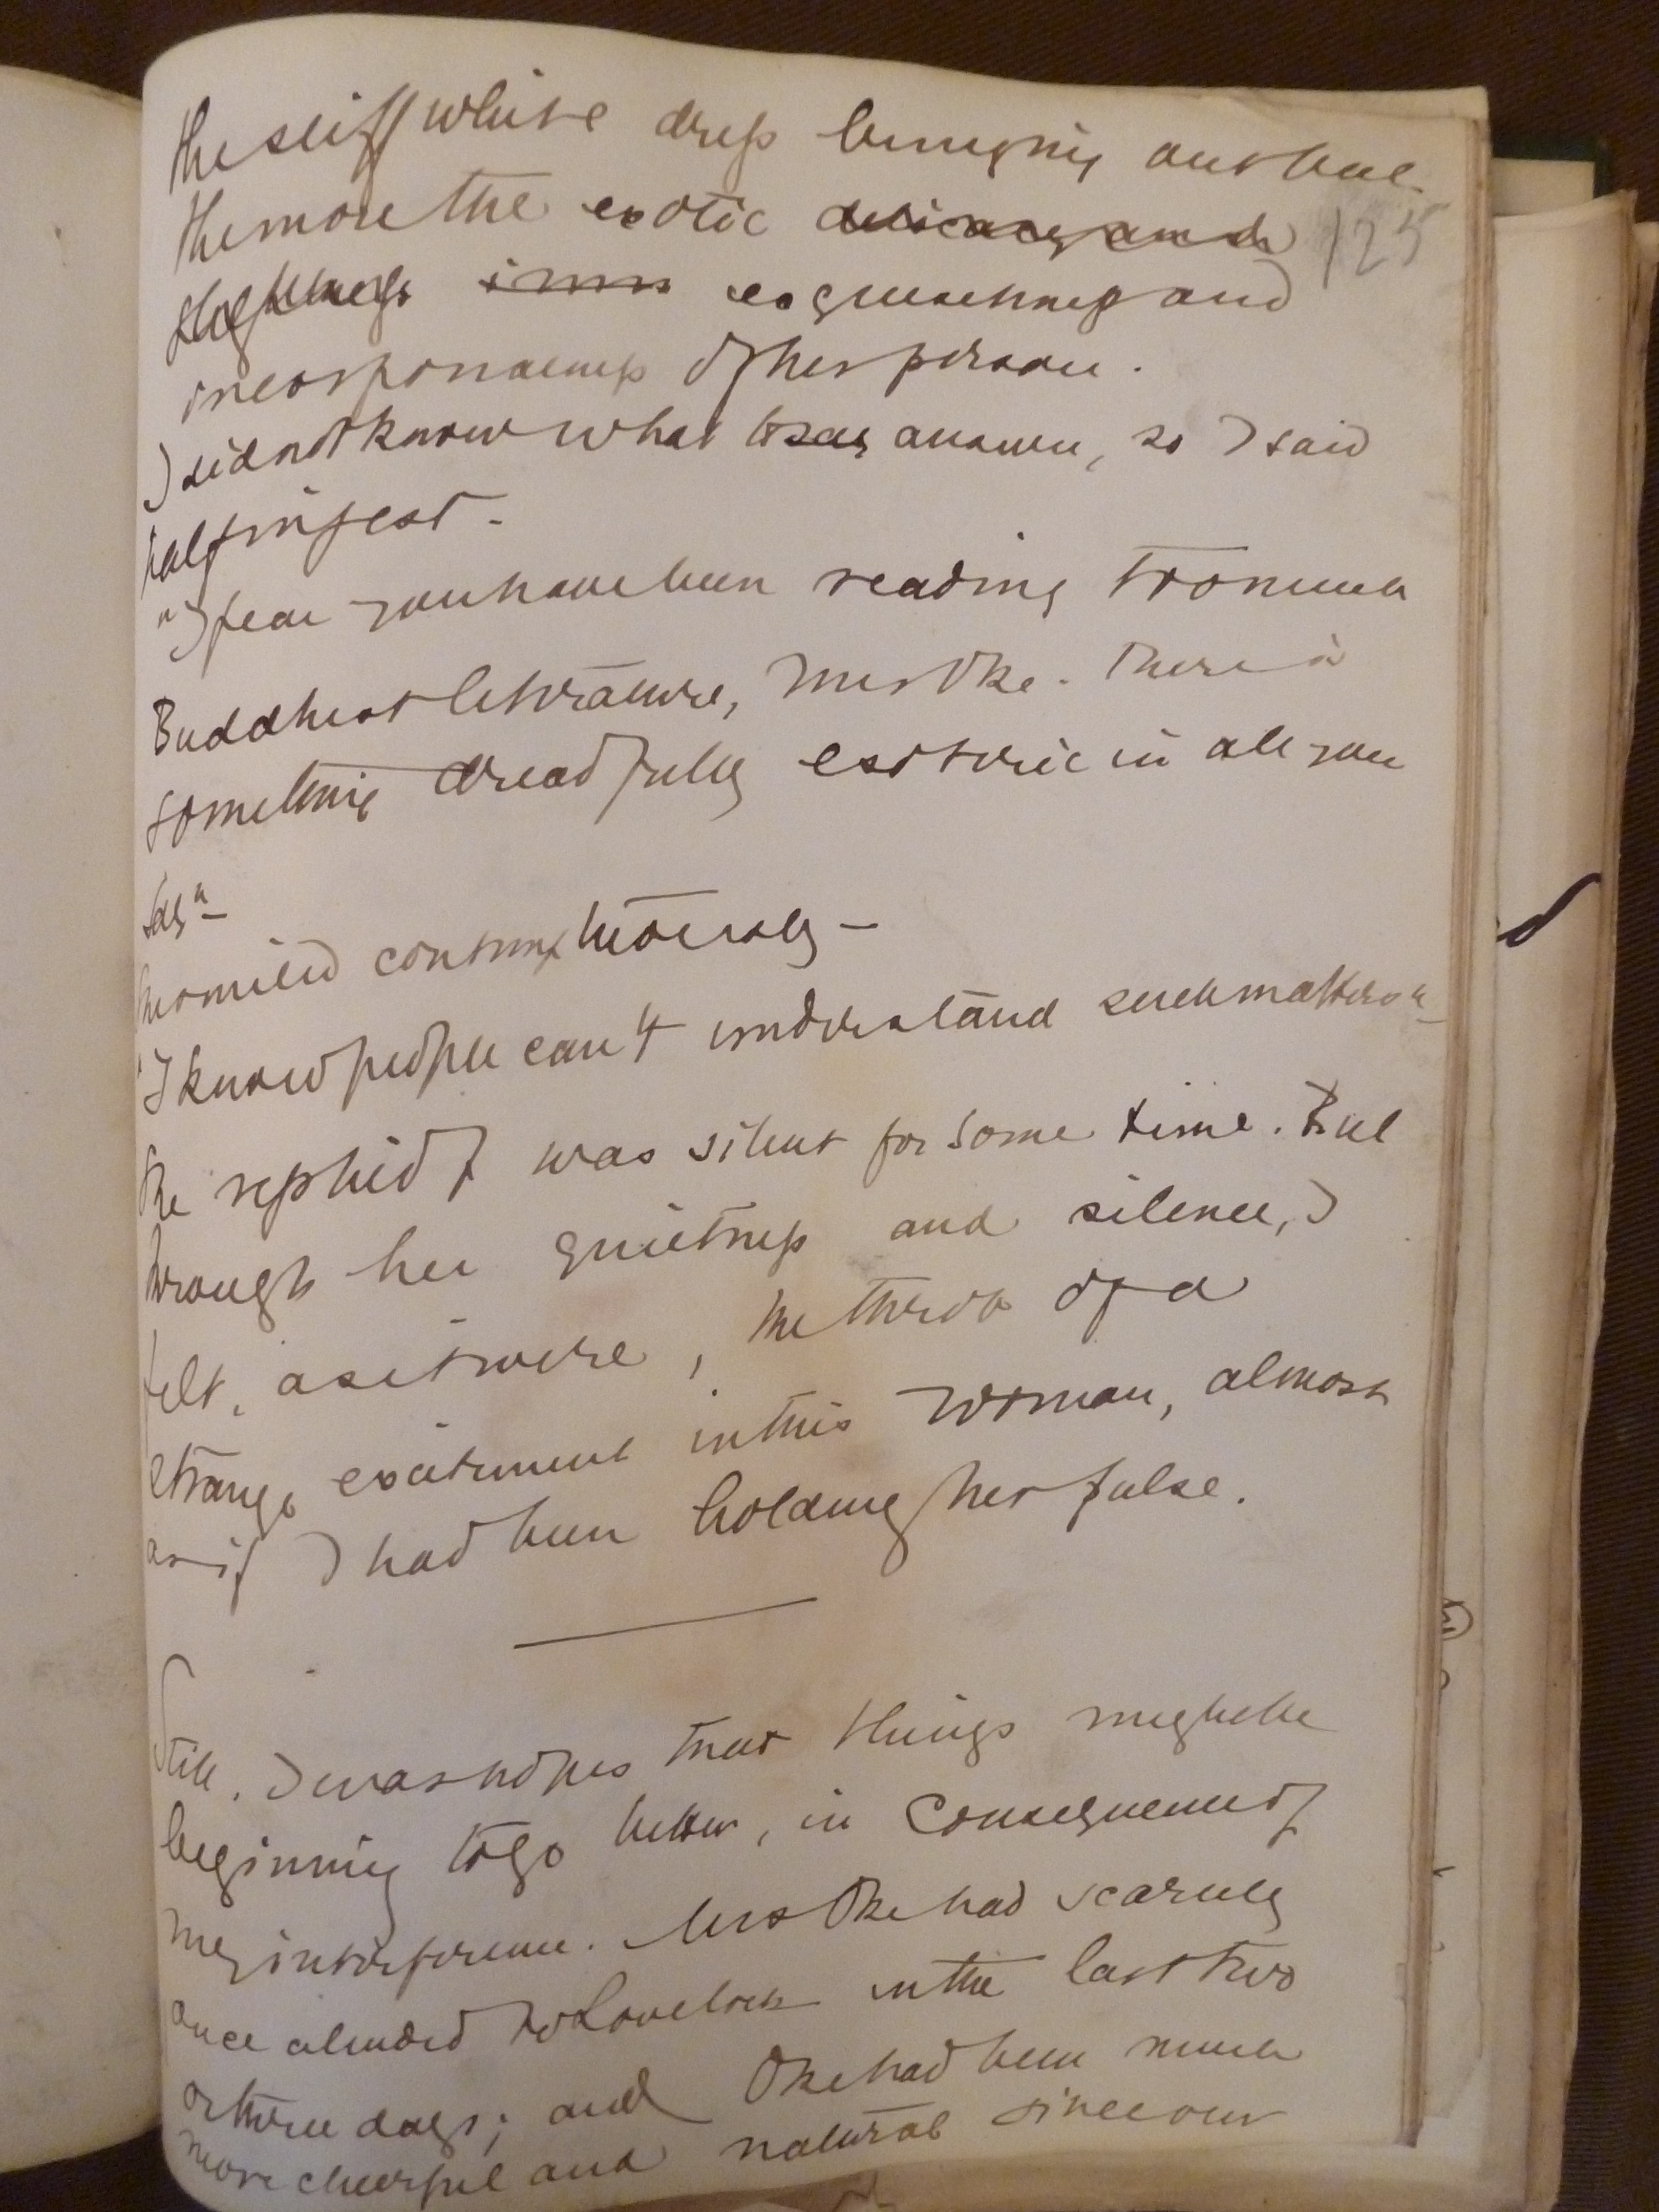 the stiff white dress bringing out but
the more the exotic delicacy and 125
exquisiteness and
incorporealness of her person.
I did not know what to say answer, so I said
half in jest.
"I fear you have been reading too much
Buddhist literature, Mrs Oke. There is
something dreadfully esoteric in all you
say"—
She smiled contemptuously—
"I know people can't understand such matters"—
she replied & was silent for some time. But
through her quietness and silence, I
felt, as it were, the throb of a
strange excitement in this woman, almost
as if I had been holding her pulse.
Still, I was in hopes that things might be
beginning to go better, in consequence of
my interference. Mrs Oke had scarcely
once alluded to Lovelock in the last two
or three days; and Oke had been much
more cheerful and natural since our